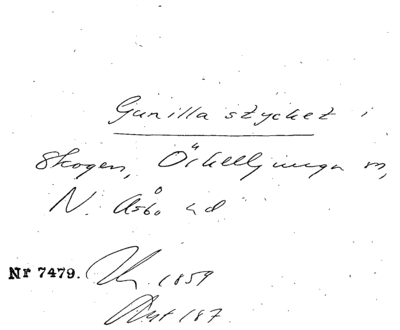 Gunilla stycket i
skogen, Örkelljunga sn,
N. Åsbo hd
Nr 7479. 1859
187